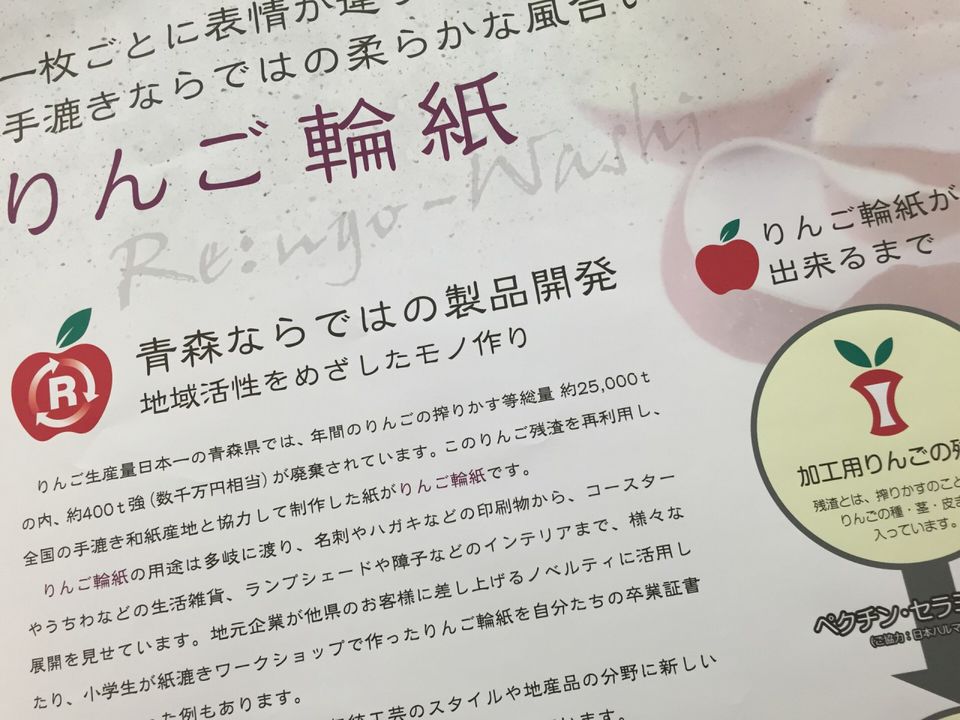 一枚ごとに表情が違
手漉きならではの柔らかな風合い
りんご輪紙
Re:ngo-Washi
R
青森ならではの製品開発
地域活性をめざしたモノ作り
りんご生産量日本一の青森県では、年間のりんごの搾りかす等総量 約25,000t
の内、約400t強（数千万円相当）が廃棄されています。このりんご残渣を再利用し、
全国の手漉き和紙産地と協力して制作した紙がりんご輪紙です。
りんご輪紙の用途は多岐に渡り、名刺やハガキなどの印刷物から、コースター
やうちわなどの生活雑貨、ランプシェードや障子などのインテリアまで、様々な
展開を見せています。地元企業が他県のお客様に差し上げるノベルティに活用し
たり、小学生が紙漉きワークショップで作ったりんご輪紙を自分たちの卒業証書
た例もあります。
統工芸のスタイルや地産品の分野に新しい
います。
りんご輪紙が
出来るまで
加工用りんごの残
残渣とは、搾りかすのこと
りんごの種・茎・皮ま
入っています。
ペクチン・セラ
（ご協力：日本ハルマ